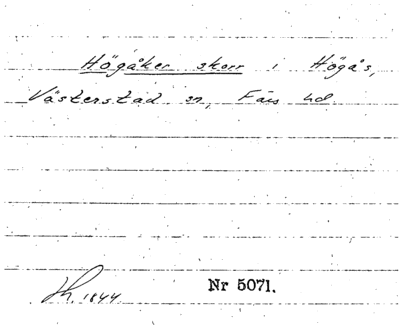 Högåker skorr i Högås,
Västerstad sn, Färs hd
Th. 1844
Nr 5071.